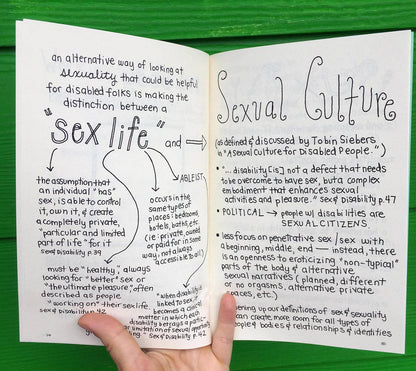 an alternative way of looking at
sexuality that could be helpful
for disabled folks is making the
distinction between a
"sex life" and →
the assumption that
an individual "has"
sex, is able to control
it, own it, & create
a completely private,
"particular and limited
part of life" for it
sex & disability p.39
occurs in the
same types of
places: bedrooms,
hotels, baths, etc
(ie: private, owned
or paid for in some
way, not always
accessible to all)
ABLEIST
must be "healthy", always
looking for "better" sex or
"the ultimate pleasure", often
described as people
"working on" their sex life
sex & disability p.42
"when disability is
linked to sex, it
becomes a clinical
matter in which each
disability betrays a
limitation of sexual opportunity
sex & disability p.42
Sexual Culture
(as defined & discussed by Tobin Siebers
in "A Sexual Culture for Disabled People.")
• "... disability [is] not a defect that needs
to be overcome to have sex, but a complex
embodiment that enhances sexual
activities and pleasure." sex & disability p.47
• POLITICAL → people w/ disabilities are
SEXUAL CITIZENS.
• less focus on penetrative sex / sex with
a beginning, middle, end — instead, there
is an openness to eroticizing "non-typical"
parts of the body & alternative
sexual narratives (planned, different
or no orgasms, alternative private
spaces, etc.)
opening up our definitions of sex & sexuality
can create more room for all types of
people & bodies & relationships & identities